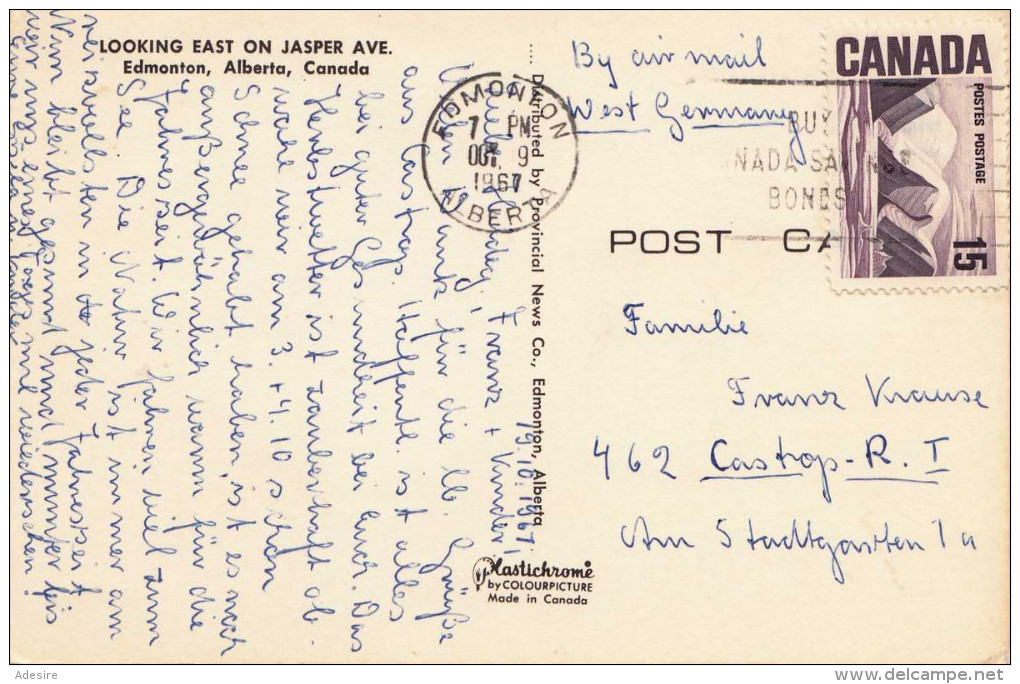 LOOKING EAST ON JASPER AVE.
Edmonton, Alberta, Canada
Distributed by Provincial News Co., Edmonton, Alberta
EDMONTON
7 PM
OCT 9
1967
ALBERTA
BUY
CANADA SAVINGS
BONDS
CANADA
POSTES POSTAGE
15
POST CA
By air mail
West Germany
Familie
Franz Krause
462 Castrop-R. I
Am Stadtgarten 1a
Plastichrome
by COLOURPICTURE
Made in Canada
9.10.1967
Franz + Kinder!
Vielen Dank für die lb. Grüße
aus Castrop. Hoffentl. ist alles
bei guter Gesundheit bei Euch. Das
Herbstwetter ist zauberhaft ob-
wohl wir am 3. + 4.10 schon
Schnee gehabt haben, ist es noch
außergewöhnlich warm für die
Jahreszeit. Wir fahren viel zum
See. Die Natur ist immer am
reizvollsten in jeder Jahreszeit
Nun bleibt gesund und munter bis
wir uns eines Tages mal wiedersehen
Adesire
delcampe.net